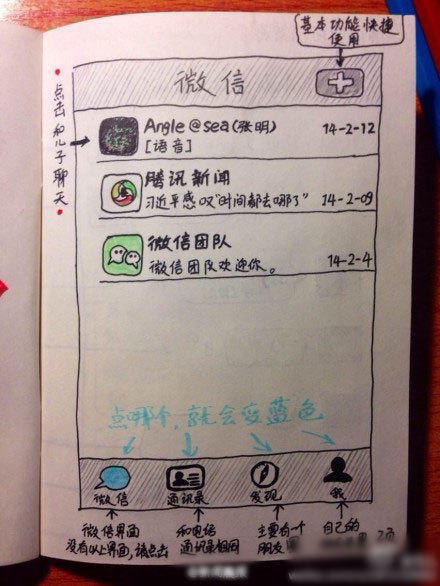 基本功能快捷
使用
微信
点击和儿子聊天
Angle@sea(张明) 14-2-12
[语音]
腾讯新闻
习近平感叹"时间都去哪了" 14-2-09
微信团队
微信团队欢迎你。 14-2-4
点哪个,就会变蓝色
微信 通讯录 发现 我
微信界面
没有以上界面,请点击
和电话
通讯录相同
主要有一个
朋友
自己的